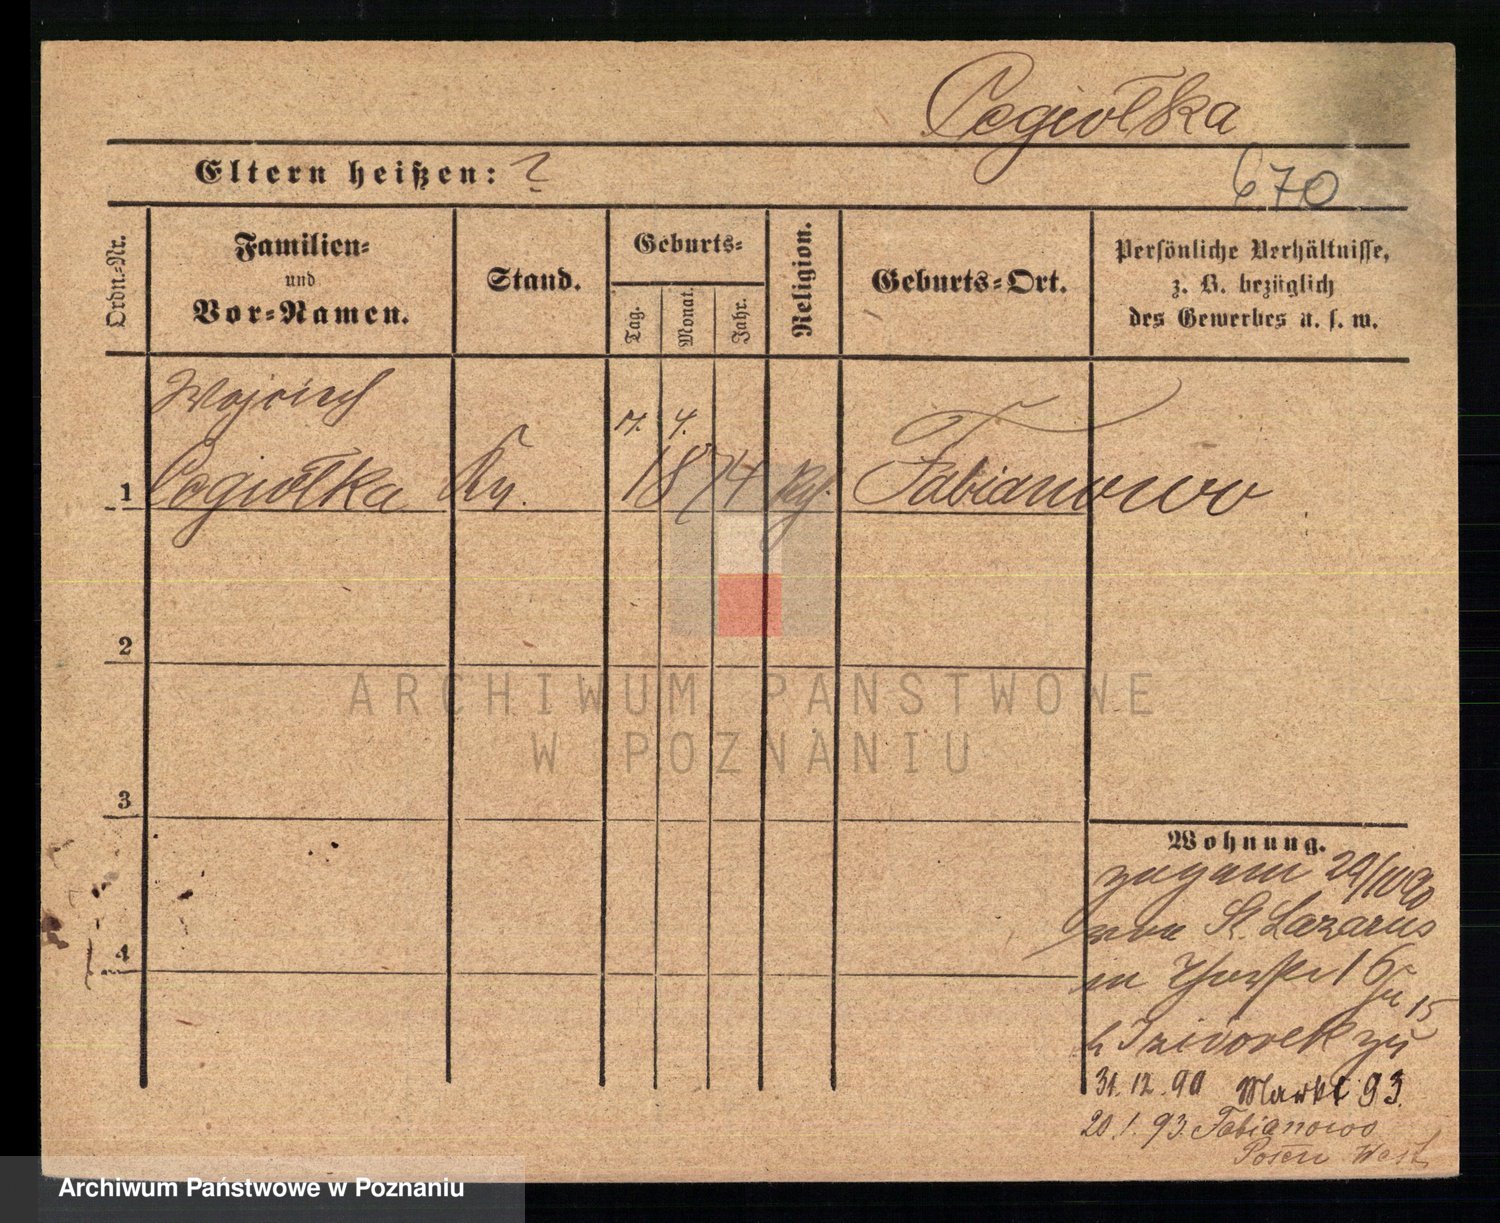 Cegiołka
Eltern heißen: ?
670
Ordn.-Nr.
Familien-
und
Vor-Namen.
Stand.
Geburts-
Tag.
Monat.
Jahr.
Religion.
Geburts-Ort.
Persönliche Verhältnisse,
z. B. bezüglich
des Gewerbes u. s. w.
Wojciech
4.
1 Cegiołka 1874 Fabianowo
2
3
4
Wohnung.
29/10 90
von St. Lazarus
in
31.12.90 Markt 93.
20.1.93. Fabianowo
Posen West
ARCHIWUM PAŃSTWOWE
W POZNANIU
Archiwum Państwowe w Poznaniu